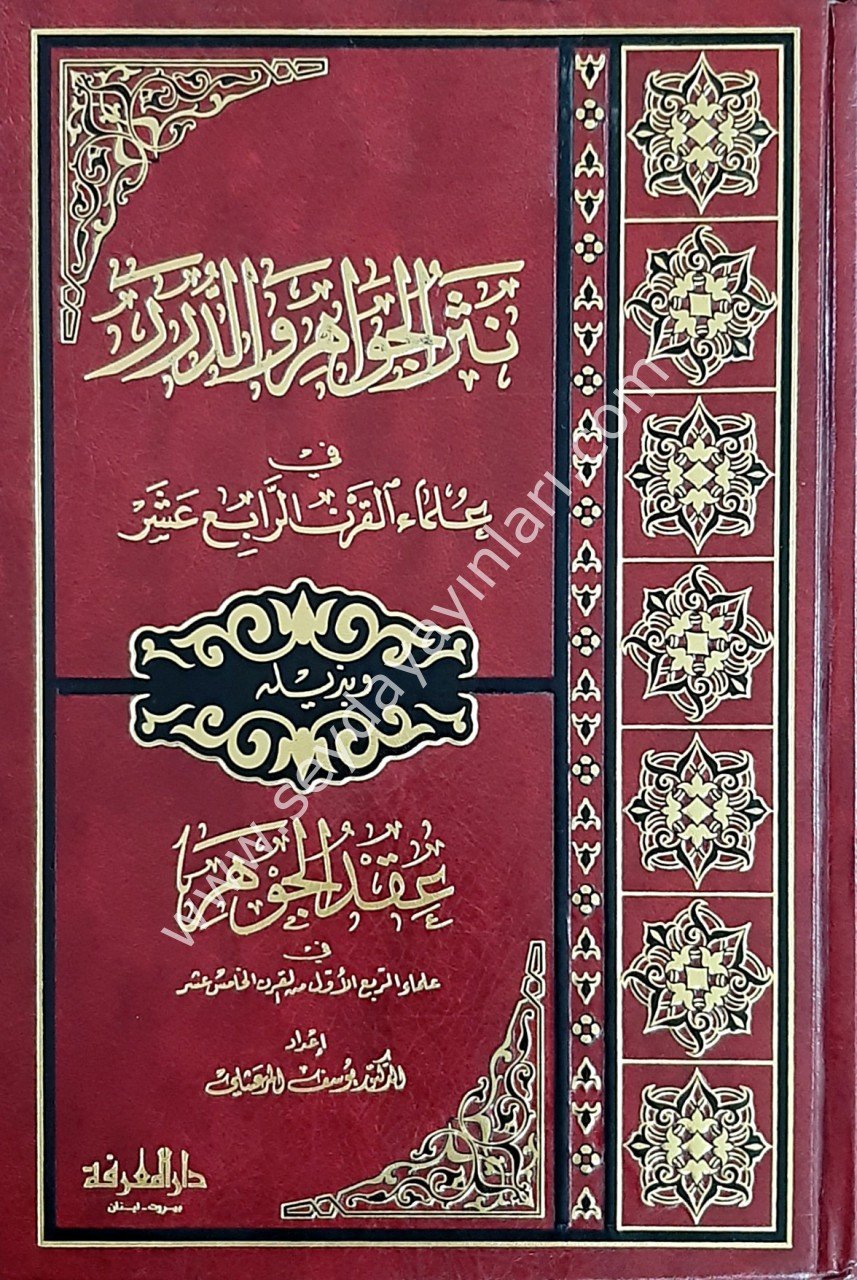 نَثْرُ الْجَوَاهِرِ وَالدُّرَرِ
في
عُلمَاءِ القَرْنِ الرَّابِع عَشَر
وبذيله
عِقْدُ الْجَوْهَر
في
علماء الربع الأوّل من القرن الخامس عشر
إعْدَاد
الدكتور يوسف المرعشلي
دار المعرفة
بيروت - لبنان
www.seydayayinlari.com